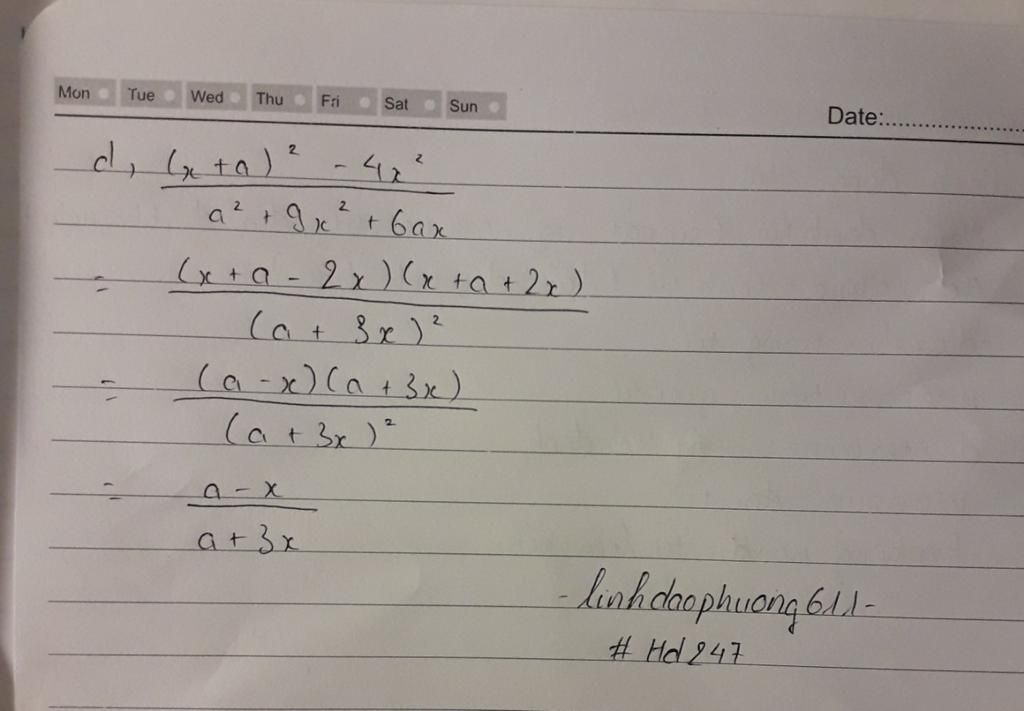 Mon Tue Wed Thu Fri Sat Sun
Date:........................
d, (x + a)² - 4x²
a² + 9x² + 6ax
= (x + a - 2x)(x + a + 2x)
(a + 3x)²
= (a - x)(a + 3x)
(a + 3x)²
= a - x
a + 3x
- linhdaophuong611 -
# Hd247